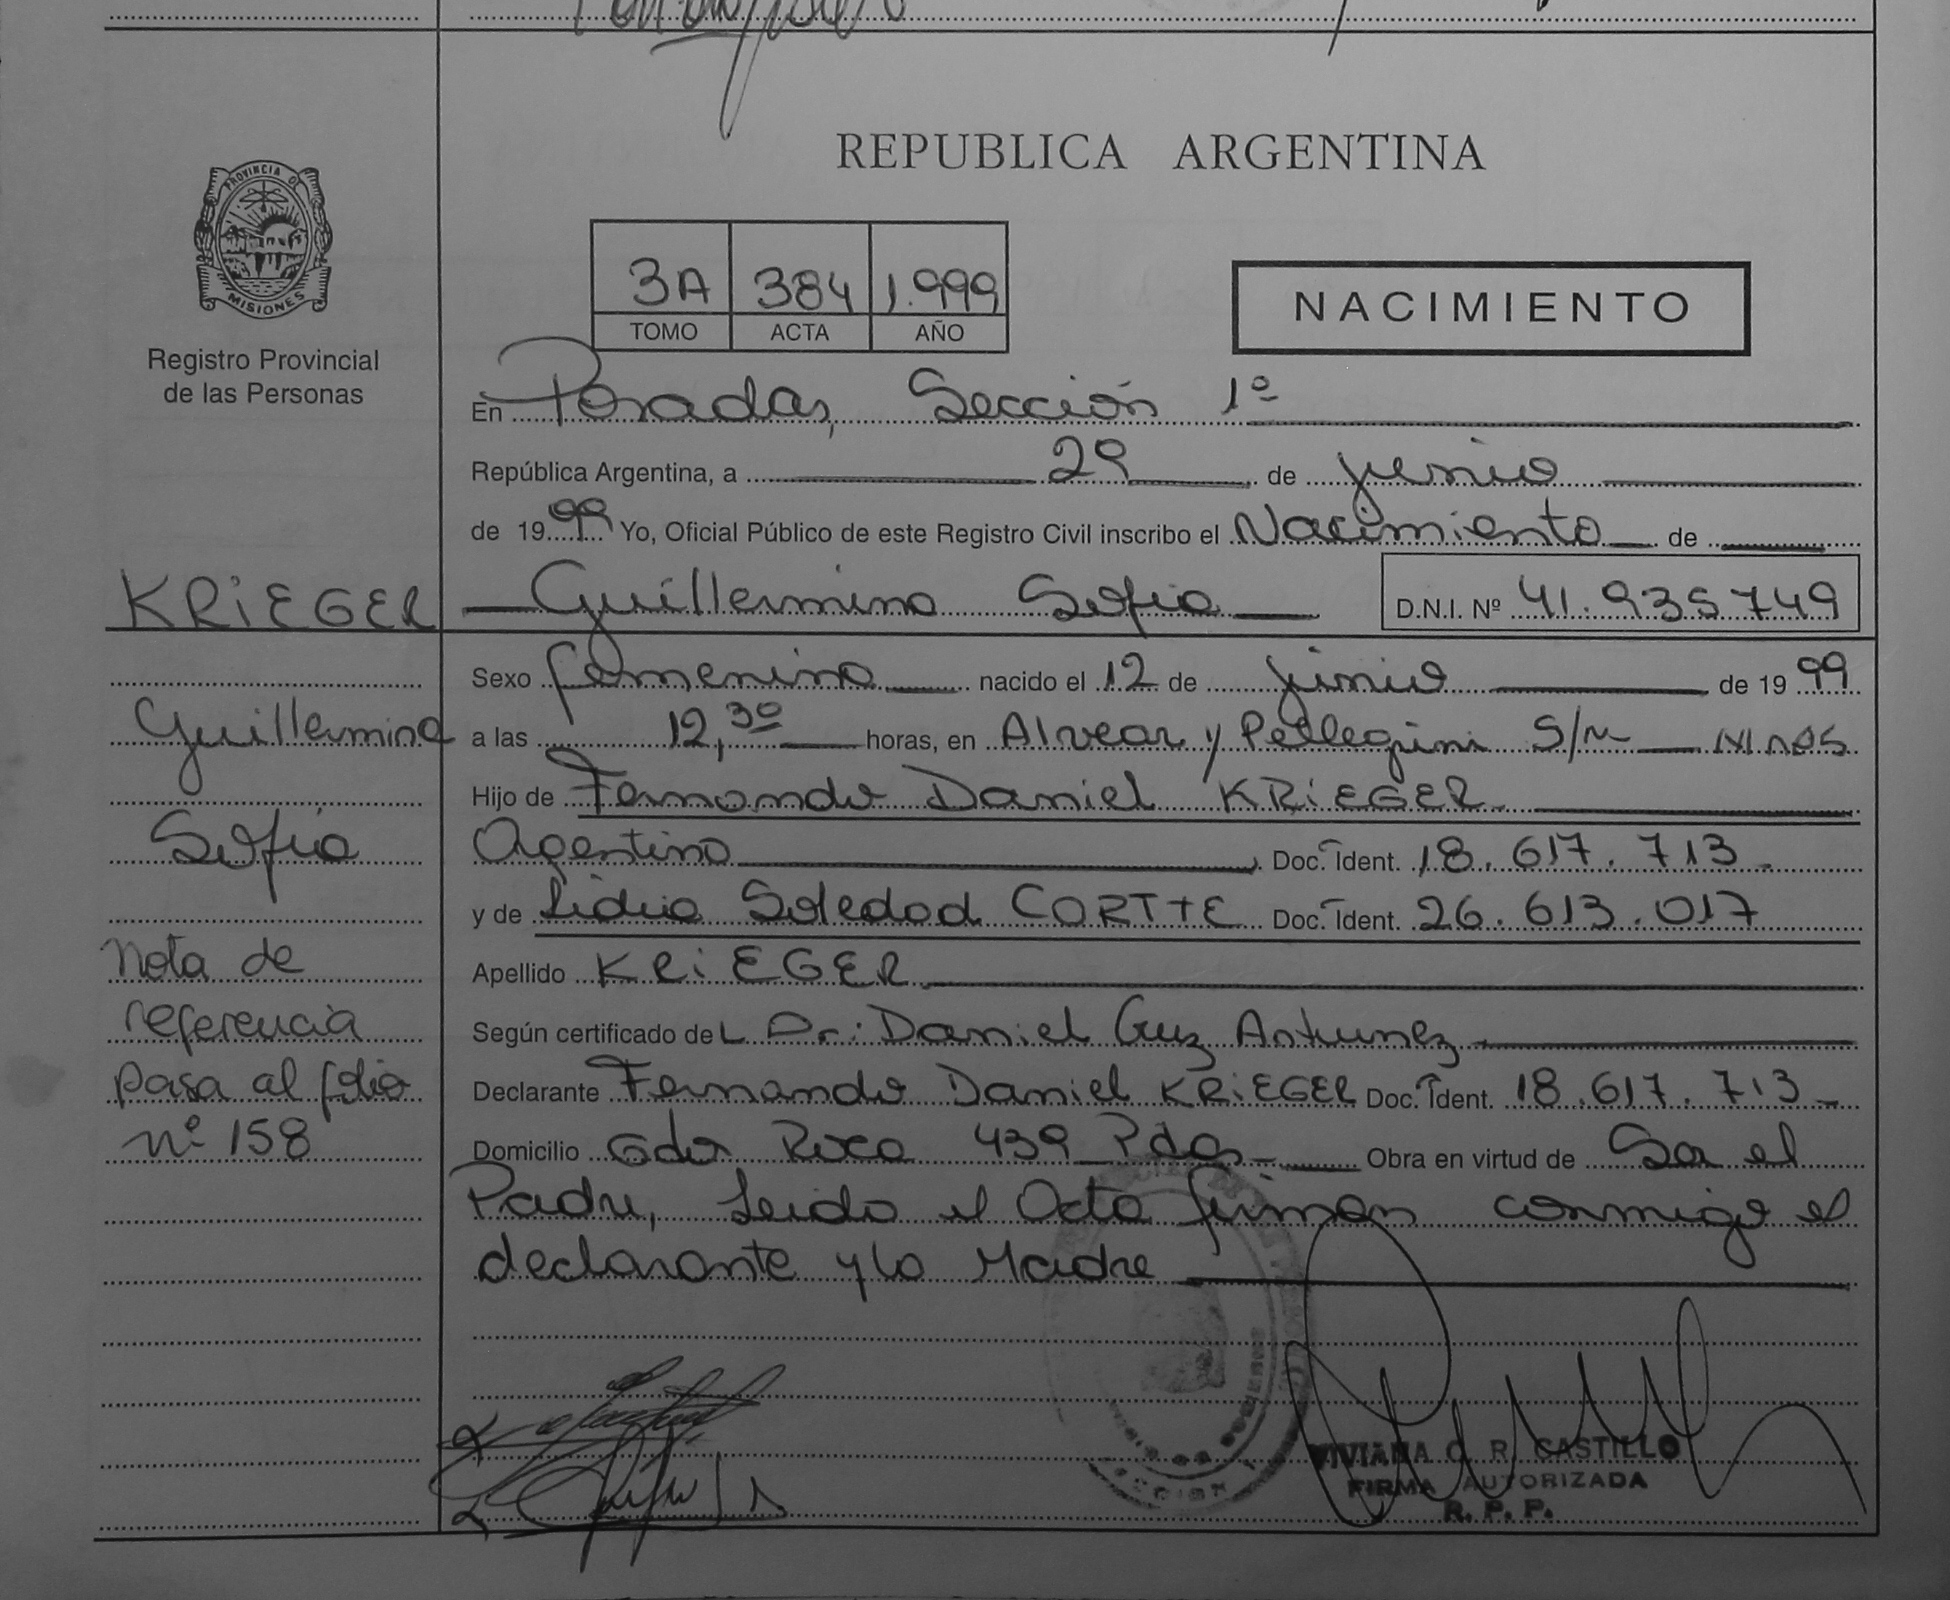 REPUBLICA ARGENTINA
PROVINCIA DE
MISIONES
Registro Provincial
de las Personas
3A 384 1.999
TOMO ACTA AÑO
NACIMIENTO
En Posadas, Sección 1º
República Argentina, a 29 de junio
de 1999 Yo, Oficial Público de este Registro Civil inscribo el Nacimiento de
KRiEGER Guillermina Sofia D.N.I. Nº 41.935749
Sexo femenino nacido el 12 de junio de 1999
Guillermina a las 12,30 horas, en Alvear y Pellegrini S/n
Hijo de Fernando Daniel KRiEGER
Sofia Argentino Doc. Ident. 18.617.713
y de Lidia Soledad CORTTE Doc. Ident. 26.613.017
Nota de Apellido KRiEGER
referencia Según certificado del Dr: Daniel Cruz Antunez
pasa al folio Declarante Fernando Daniel KRiEGER Doc. Ident. 18.617.713
nº 158 Domicilio Gdor Roca 439 Pdas Obra en virtud de Ser el
Padre, Leido el Acta firman conmigo el
declarante y la Madre
VIVIANA C. R. CASTILLO
FIRMA AUTORIZADA
R. P. P.